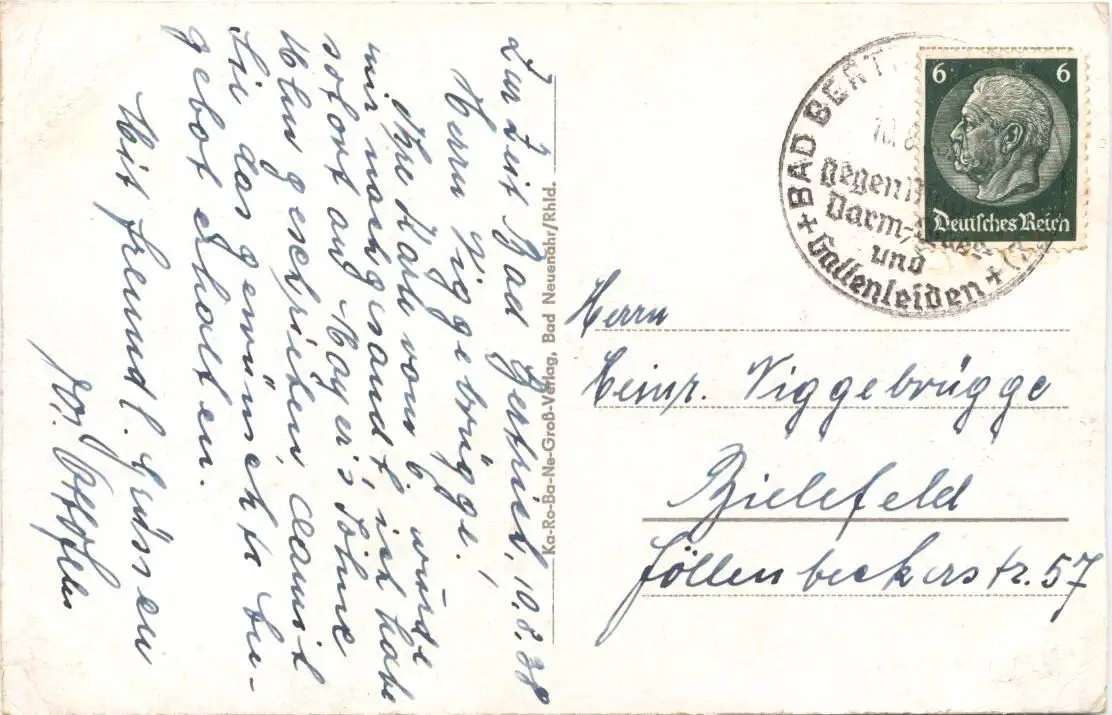 Zur Zeit Bad Bertrich, 10.8.38
Herrn Viggebrügge!
Ihre Karte vom 6. wurde
mir nachgesandt, ich habe
sofort an Mayer's Söhne
Uhn geschrieben, damit
Sie das gewünschte An-
gebot erhalten.
Mit freundl. Grüssen
Ka-Ro-Ba-Ne-Groß-Verlag, Bad Neuenahr/Rhld.
+ BAD BERT
10.8.
gegen
Darm-,
und
Gallenleiden +
6 6
Deutsches Reich
Herrn
Heinr. Viggebrügge
Bielefeld
Jöllenbeckerstr. 57